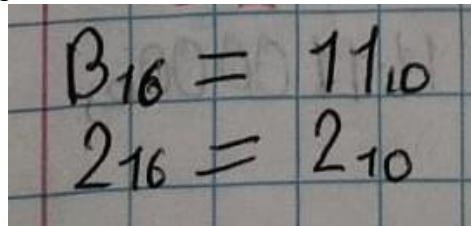 B₁₆ = 11₁₀
2₁₆ = 2₁₀